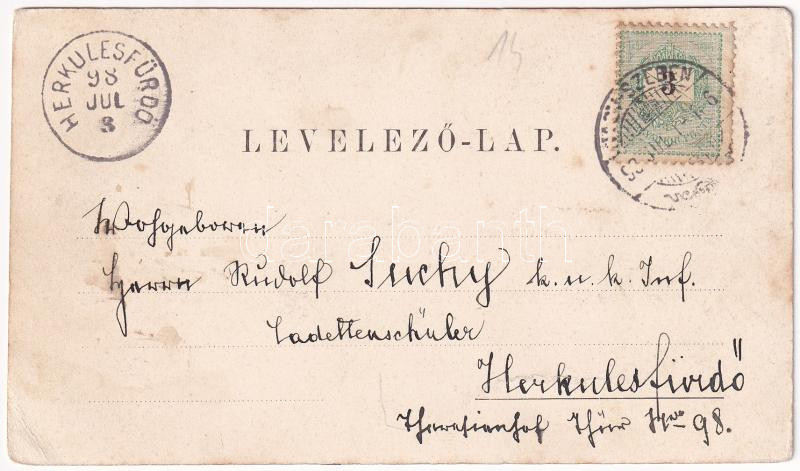 14
HERKULESFÜRDŐ
98
JUL
3
3
SZEBEN
LEVELEZŐ-LAP.
Wohgeboren
Herrn Rudolf Suchy k. u. k. Inf.
Cadettenschüler
Herkulesfürdő
Theresienhof Thür Nro 98.
darabanth